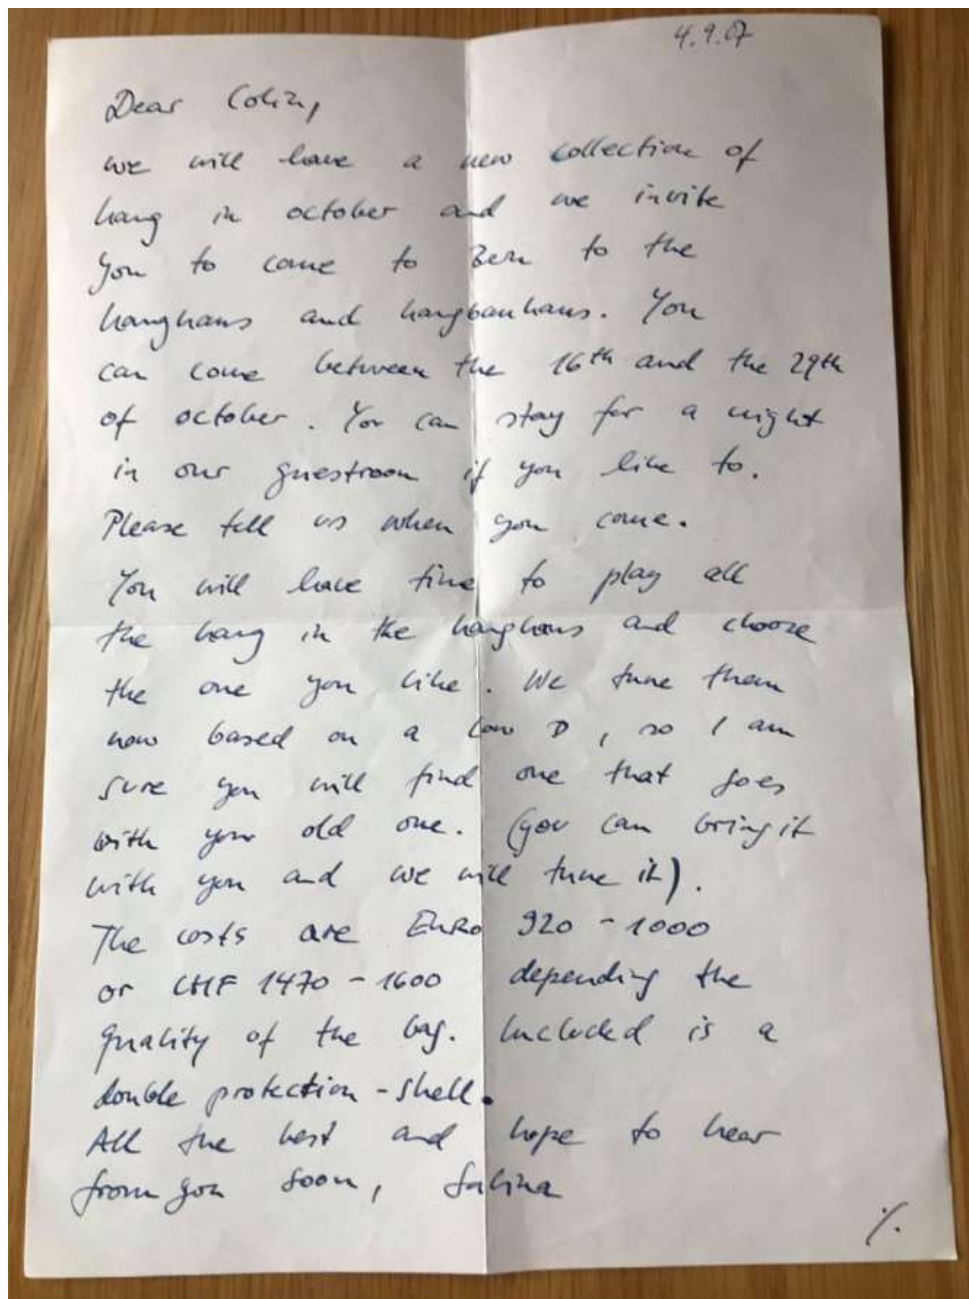 4.9.07
Dear Colin,
we will have a new collection of
hang in october and we invite
you to come to Bern to the
hanghaus and hangbauhaus. You
can come between the 16th and the 29th
of october. You can stay for a night
in our guestroom if you like to.
Please tell us when you come.
You will have time to play all
the hang in the hanghaus and choose
the one you like. We tune them
now based on a low D, so I am
sure you will find one that goes
with your old one. (you can bring it
with you and we will tune it).
The costs are EURO 920 - 1000
or CHF 1470 - 1600 depending the
quality of the bag. Included is a
double protection - shell.
All the best and hope to hear
from you soon, Sabina
./.